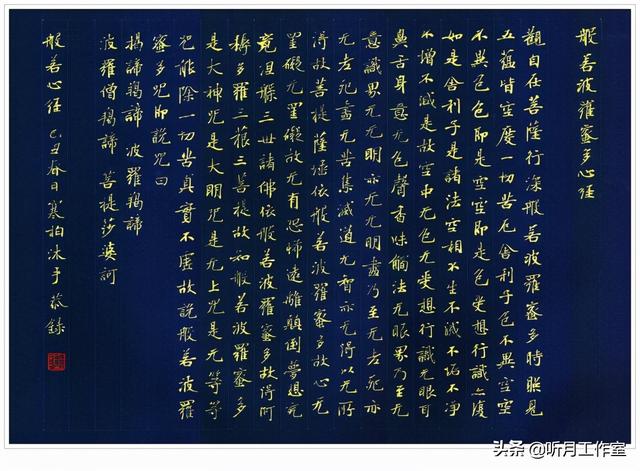 般若波羅蜜多心經
觀自在菩薩行深般若波羅蜜多時照見
五蘊皆空度一切苦厄舍利子色不異空空
不異色色即是空空即是色受想行識亦復
如是舍利子是諸法空相不生不滅不垢不淨
不增不減是故空中无色无受想行識无眼耳
鼻舌身意无色聲香味觸法无眼界乃至无
意識界无无明亦无无明盡乃至无老死亦
无老死盡无苦集滅道无智亦无得以无所
得故菩提薩埵依般若波羅蜜多故心无
罣礙无罣礙故无有恐怖遠離顛倒夢想究
竟涅槃三世諸佛依般若波羅蜜多故得阿
耨多羅三藐三菩提故知般若波羅蜜多
是大神咒是大明咒是无上咒是无等等
咒能除一切苦真實不虛故說般若波羅
蜜多咒即說咒曰
揭諦揭諦 波羅揭諦
波羅僧揭諦 菩提莎婆訶
般若心經 己丑春日寒柏沐手恭錄
头条@听月工作室